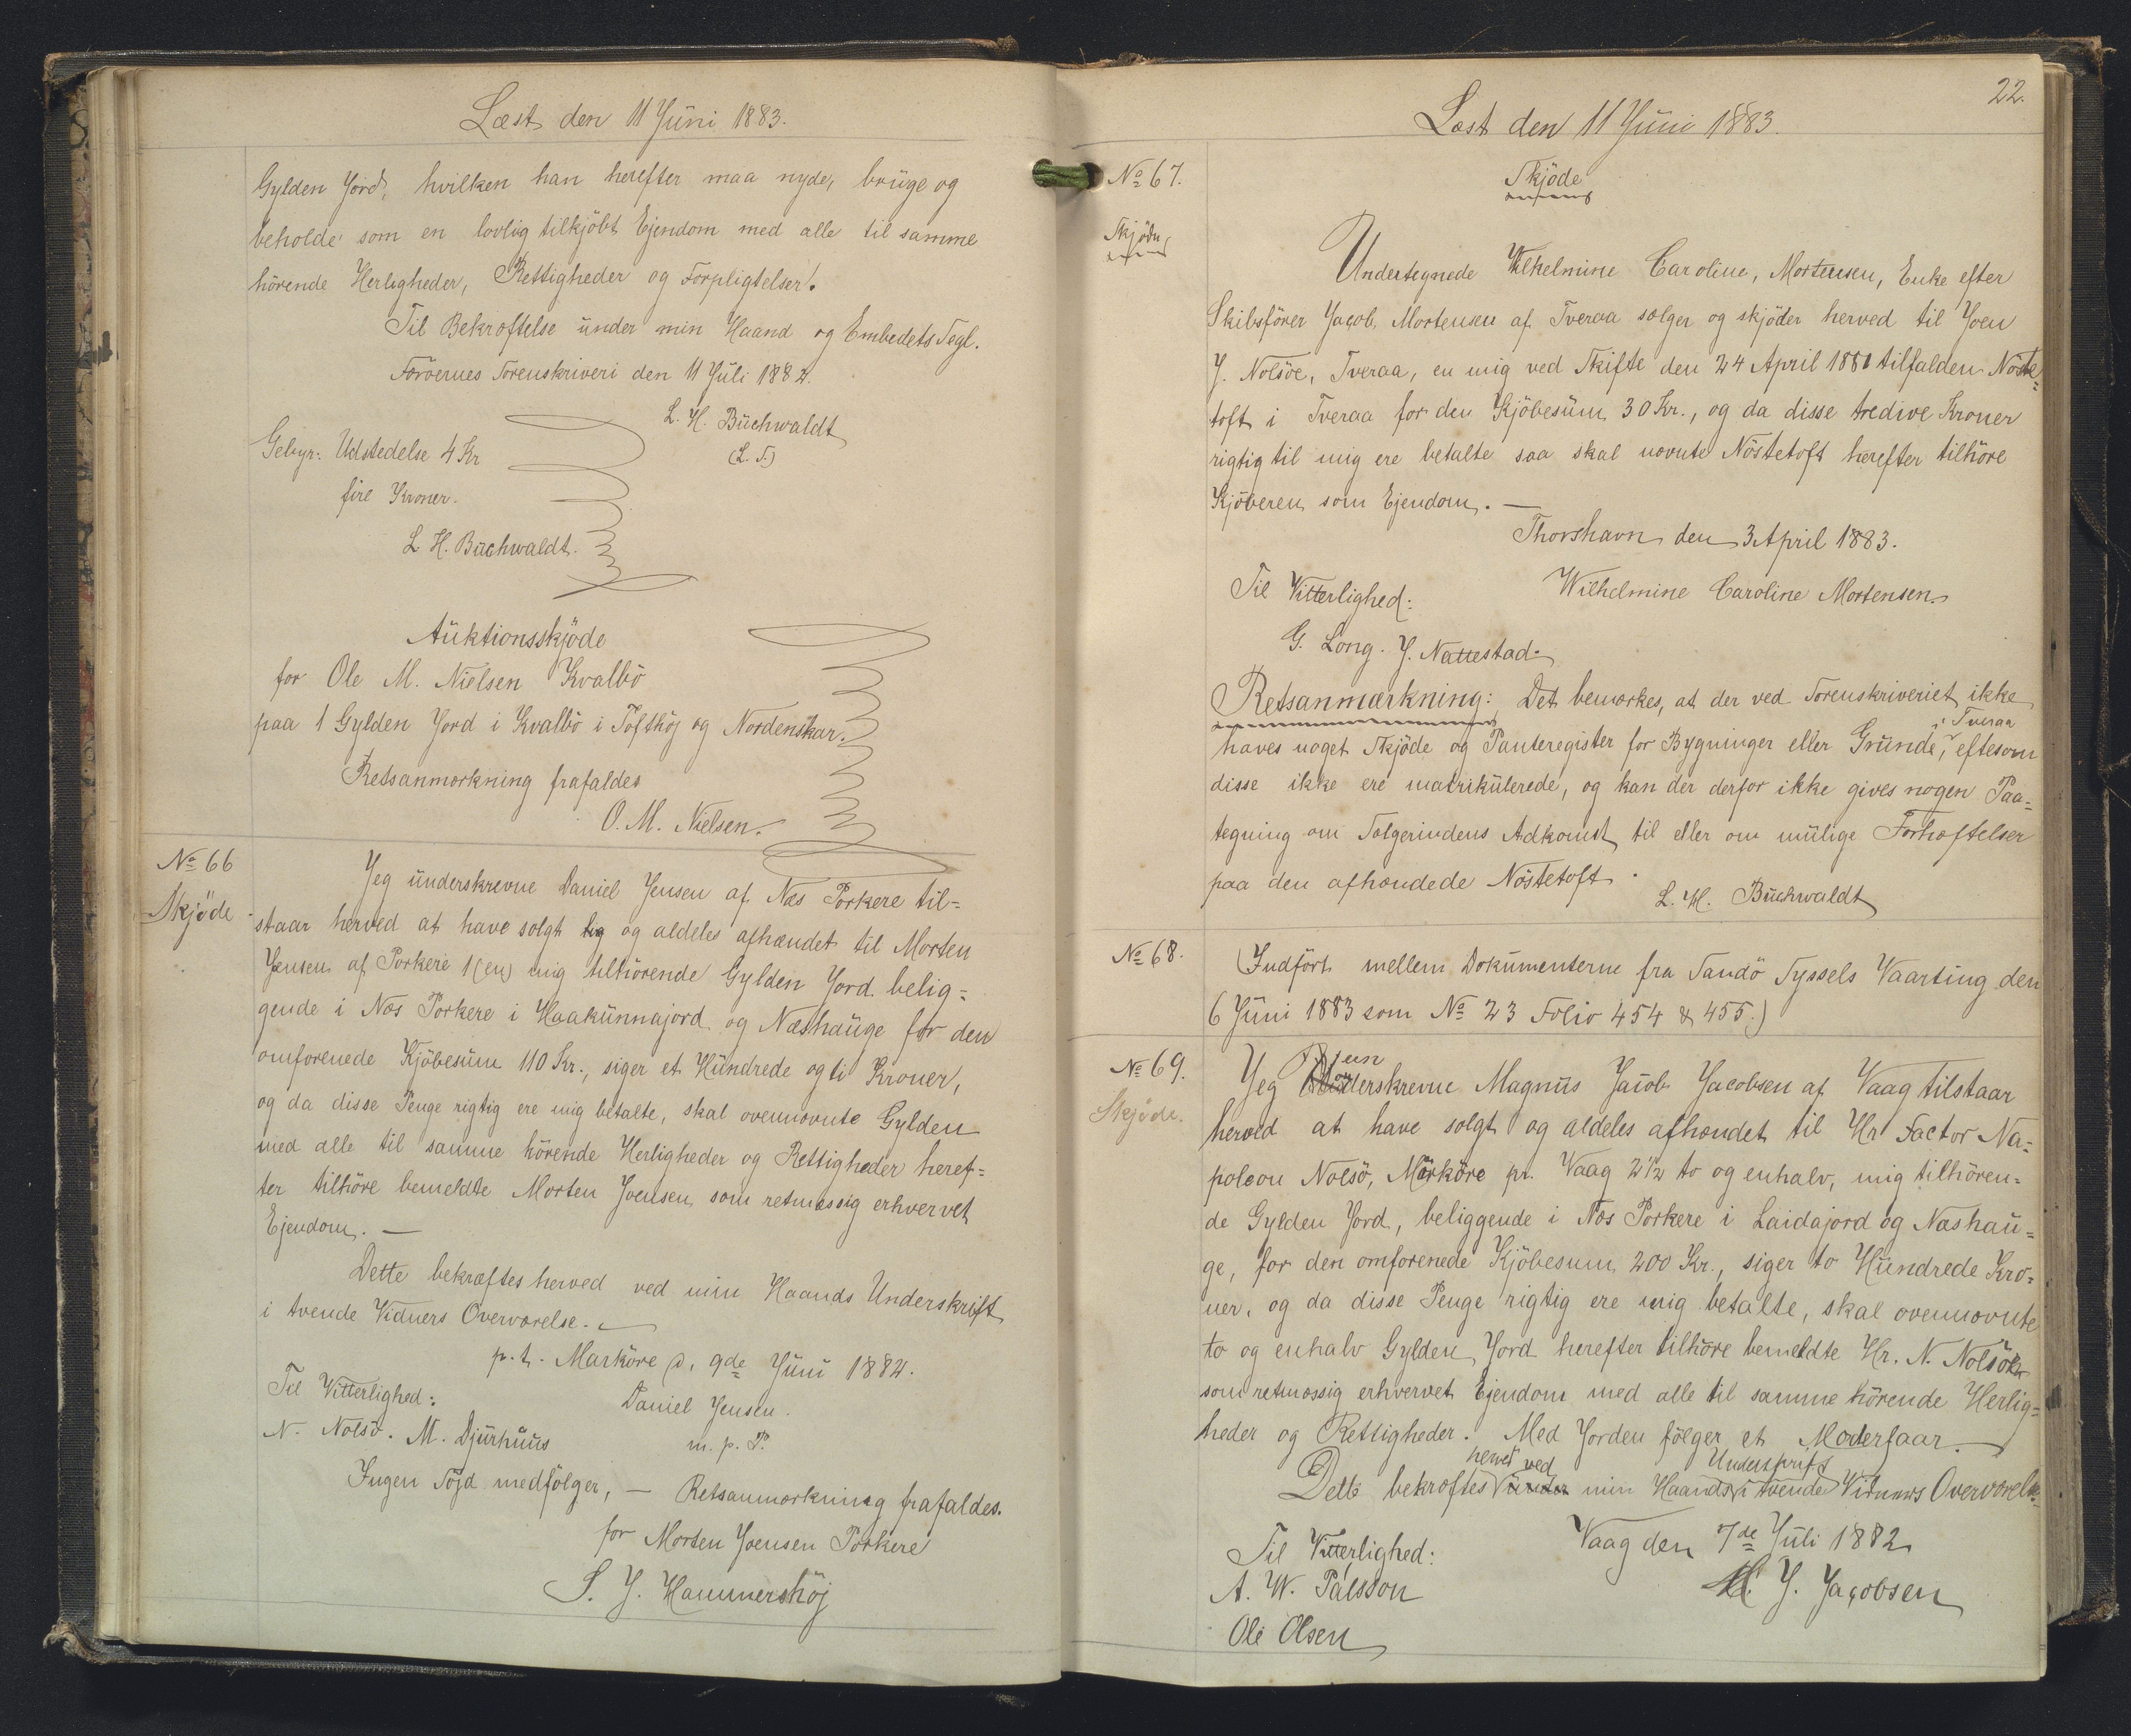 Læst den 11 Juni 1883.
Gylden Jord, hvilken han herefter maa nyde, bruge og
beholde som en lovlig tilkjöbt Ejendom med alle til samme
hörende Herligheder, Rettigheder og Forpligtelser.
Til Bekræftelse under min Haand og Embedets Segl.
Færöernes Sorenskriveri den 11 Juli 1882.
L. H. Buchwaldt
(L. S.)
Gebyr: Udstedelse 4 Kr
fire Kroner.
L. H. Buchwaldt.
Auktionsskjöde
for Ole M. Nielsen Kvalbö
paa 1 Gylden Jord i Kvalbö i Toftköj og Nordenskar.
Retsanmærkning frafaldes
O. M. Nielsen.
No 66
Skjöde
Jeg underskrevne Daniel Jensen af Næs Porkere til=
staar herved at have solgt og aldeles afhændet til Morten
Joensen af Porkere 1 (en) mig tilhörende Gylden Jord belig=
gende i Næs Porkere i Haakunnajord og Næshauge for den
omforenede Kjöbesum 110 Kr., siger et Hundrede og ti Kroner,
og da disse Penge rigtig ere mig betalte, skal ovennævnte Gylden
med alle til samme hörende Herligheder og Rettigheder heref=
ter tilhöre bemeldte Morten Joensen som retmæssig erhvervet
Ejendom. —
Dette bekræftes herved ved min Haands Underskrift
i tvende Vidners Overværelse. —
p. t. Marköre d. 9de Juni 1882.
Til Vitterlighed:
Daniel Jensen.
N. Nolsö. M. Djurhuus
m. p. P.
Ingen Söjd medfölger, — Retsanmærkning frafaldes.
for Morten Joensen Porkere
S. J. Hammershöj
22.
Læst den 11 Juni 1883.
No 67.
Skjöde
Skjöde
Undertegnede Wilhelmine Caroline, Mortensen, Enke efter
Skibsförer Jacob Mortensen af Tveraa sælger og skjöder herved til Joen
J. Nolsöe, Tveraa, en mig ved Skifte den 24 April 1881 tilfalden Nöste=
toft i Tveraa for den Kjöbesum 30 Kr., og da disse tredive Kroner
rigtig til mig ere betalte saa skal nævnte Nöstetoft herefter tilhöre
Kjöberen som Ejendom. —
Thorshavn den 3 April 1883.
Til Vitterlighed:
Wilhelmine Caroline Mortensen.
G. Long. J. Nattestad.
Retsanmærkning: Det bemærkes, at der ved Sorenskriveriet ikke
haves noget Skjöde og Panteregister for Bygninger eller Grunde i Tveraa, eftesom
disse ikke ere matrikulerede, og kan der derfor ikke gives nogen Paa=
tegning om Sælgerindens Adkomst til eller om mulige Forhæftelser
paa den afhændede Nöstetoft.
L. H. Buchwaldt
No 68.
(Indfört mellem Dokumenterne fra Sandö Syssels Vaarting den
6 Juni 1883 som No 23 Folio 454 & 455.)
No 69.
Skjöde.
Jeg underskrevne Magnus Jacob Jacobsen af Vaag tilstaar
herved at have solgt og aldeles afhændet til Hr Factor Na=
poleon Nolsö, Mörköre pr. Vaag 2½ to og enhalv, mig tilhören=
de Gylden Jord, beliggende i Næs Porkere i Laidajord og Næshau=
ge, for den omforenede Kjöbesum 200 Kr., siger to Hundrede Kro=
ner, og da disse Penge rigtig ere mig betalte, skal ovennævnte
to og enhalv Gylden Jord herefter tilhöre bemeldte Hr. N. Nolsöe
som retmæssig erhvervet Ejendom med alle til samme hörende Herlig=
heder og Rettigheder. Med Jorden fölger et Moderfaar. —
Dette bekræftes herved ved min Haands Underskrift i tvende Vidners Overværelse.
Vaag den 7de Juli 1882
Til Vitterlighed:
M. J. Jacobsen
A. W. Palsson
Ole Olsen